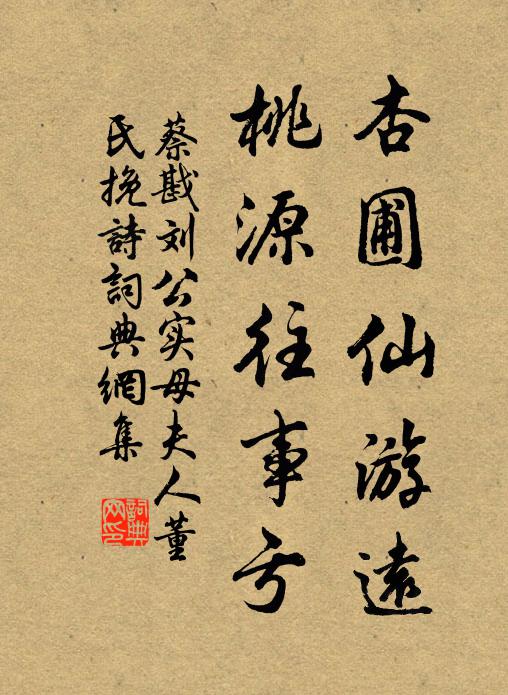 杏圃仙游遠
桃源往事亏
蔡戡刘公实母夫人董
民挽詩詞典網集
詞典
网印